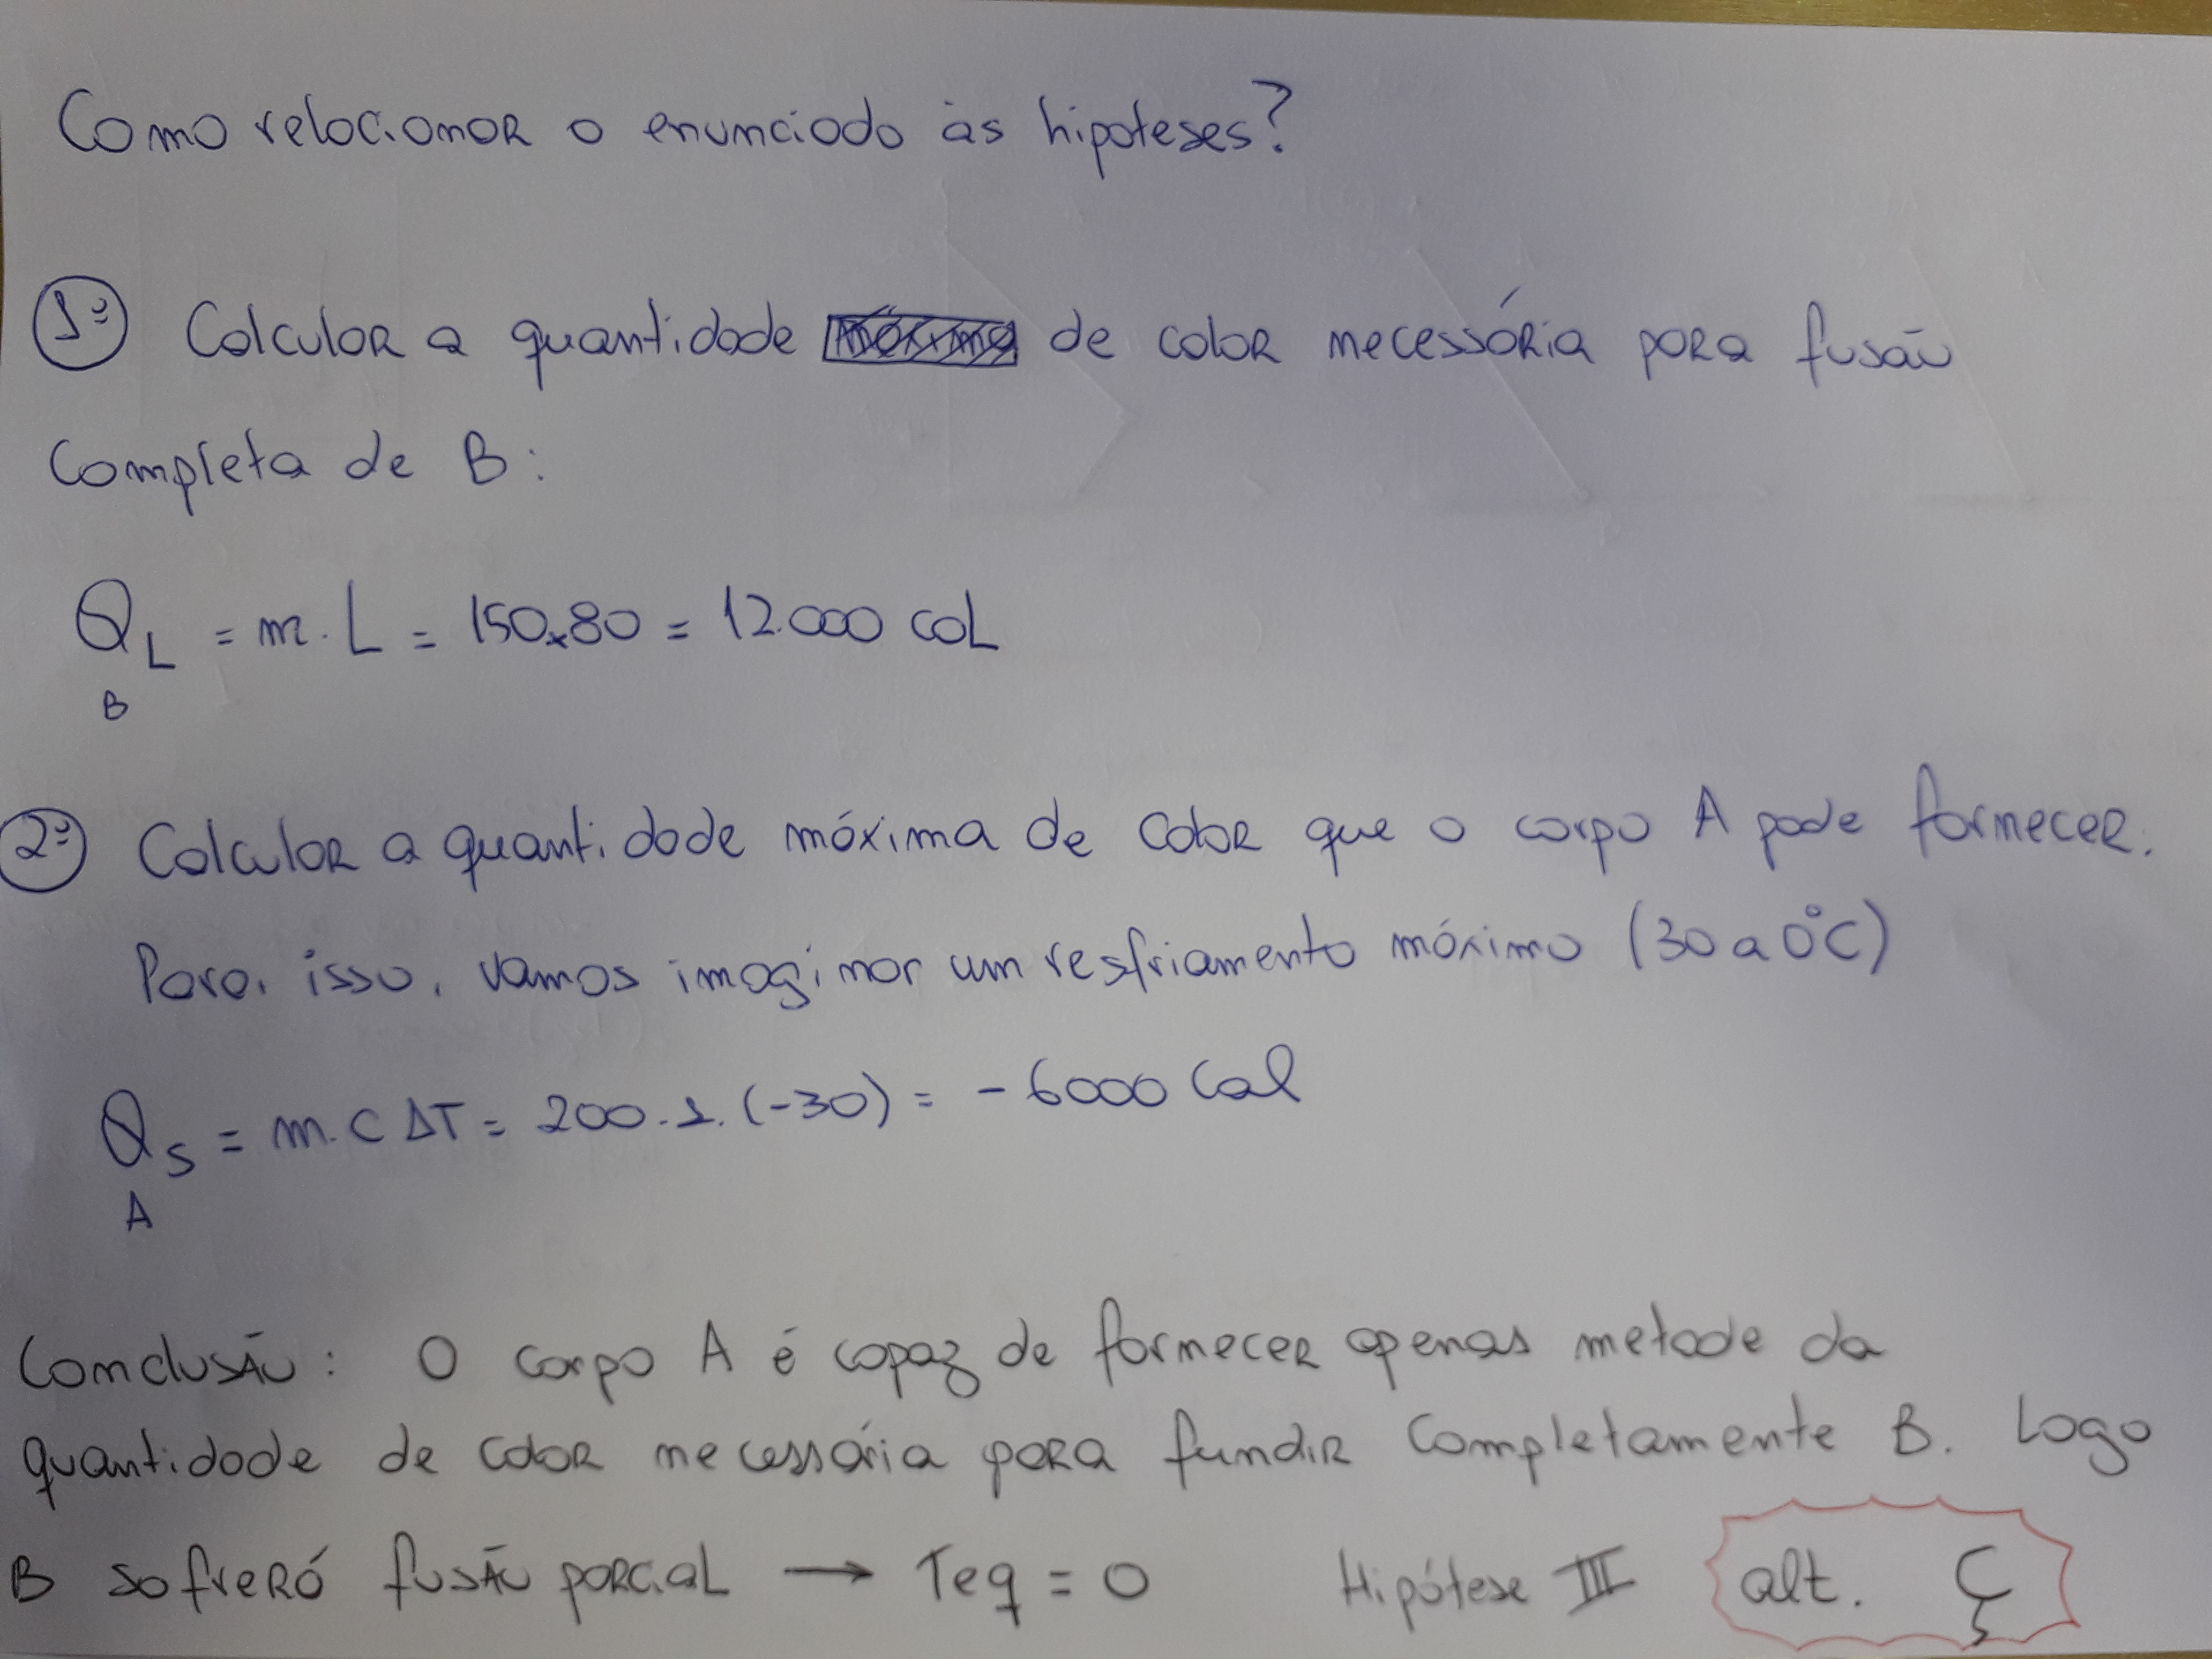 Como relacionar o enunciado às hipoteses?
1º Calcular a quantidade de calor necessária para fusão
Completa de B:
Q_L = m. L = 150x80 = 12.000 cal
B
2º Calcular a quantidade máxima de calor que o corpo A pode fornecer.
Para. isso, vamos imaginar um resfriamento máximo (30 a 0°C)
Q_S = m. C ΔT = 200.1.(-30) = -6000 Cal
A
Conclusão: O corpo A é capaz de fornecer apenas metade da
quantidade de calor necessária para fundir Completamente B. Logo
B sofrerá fusão parcial → Teq = 0 Hipótese III alt. Ç